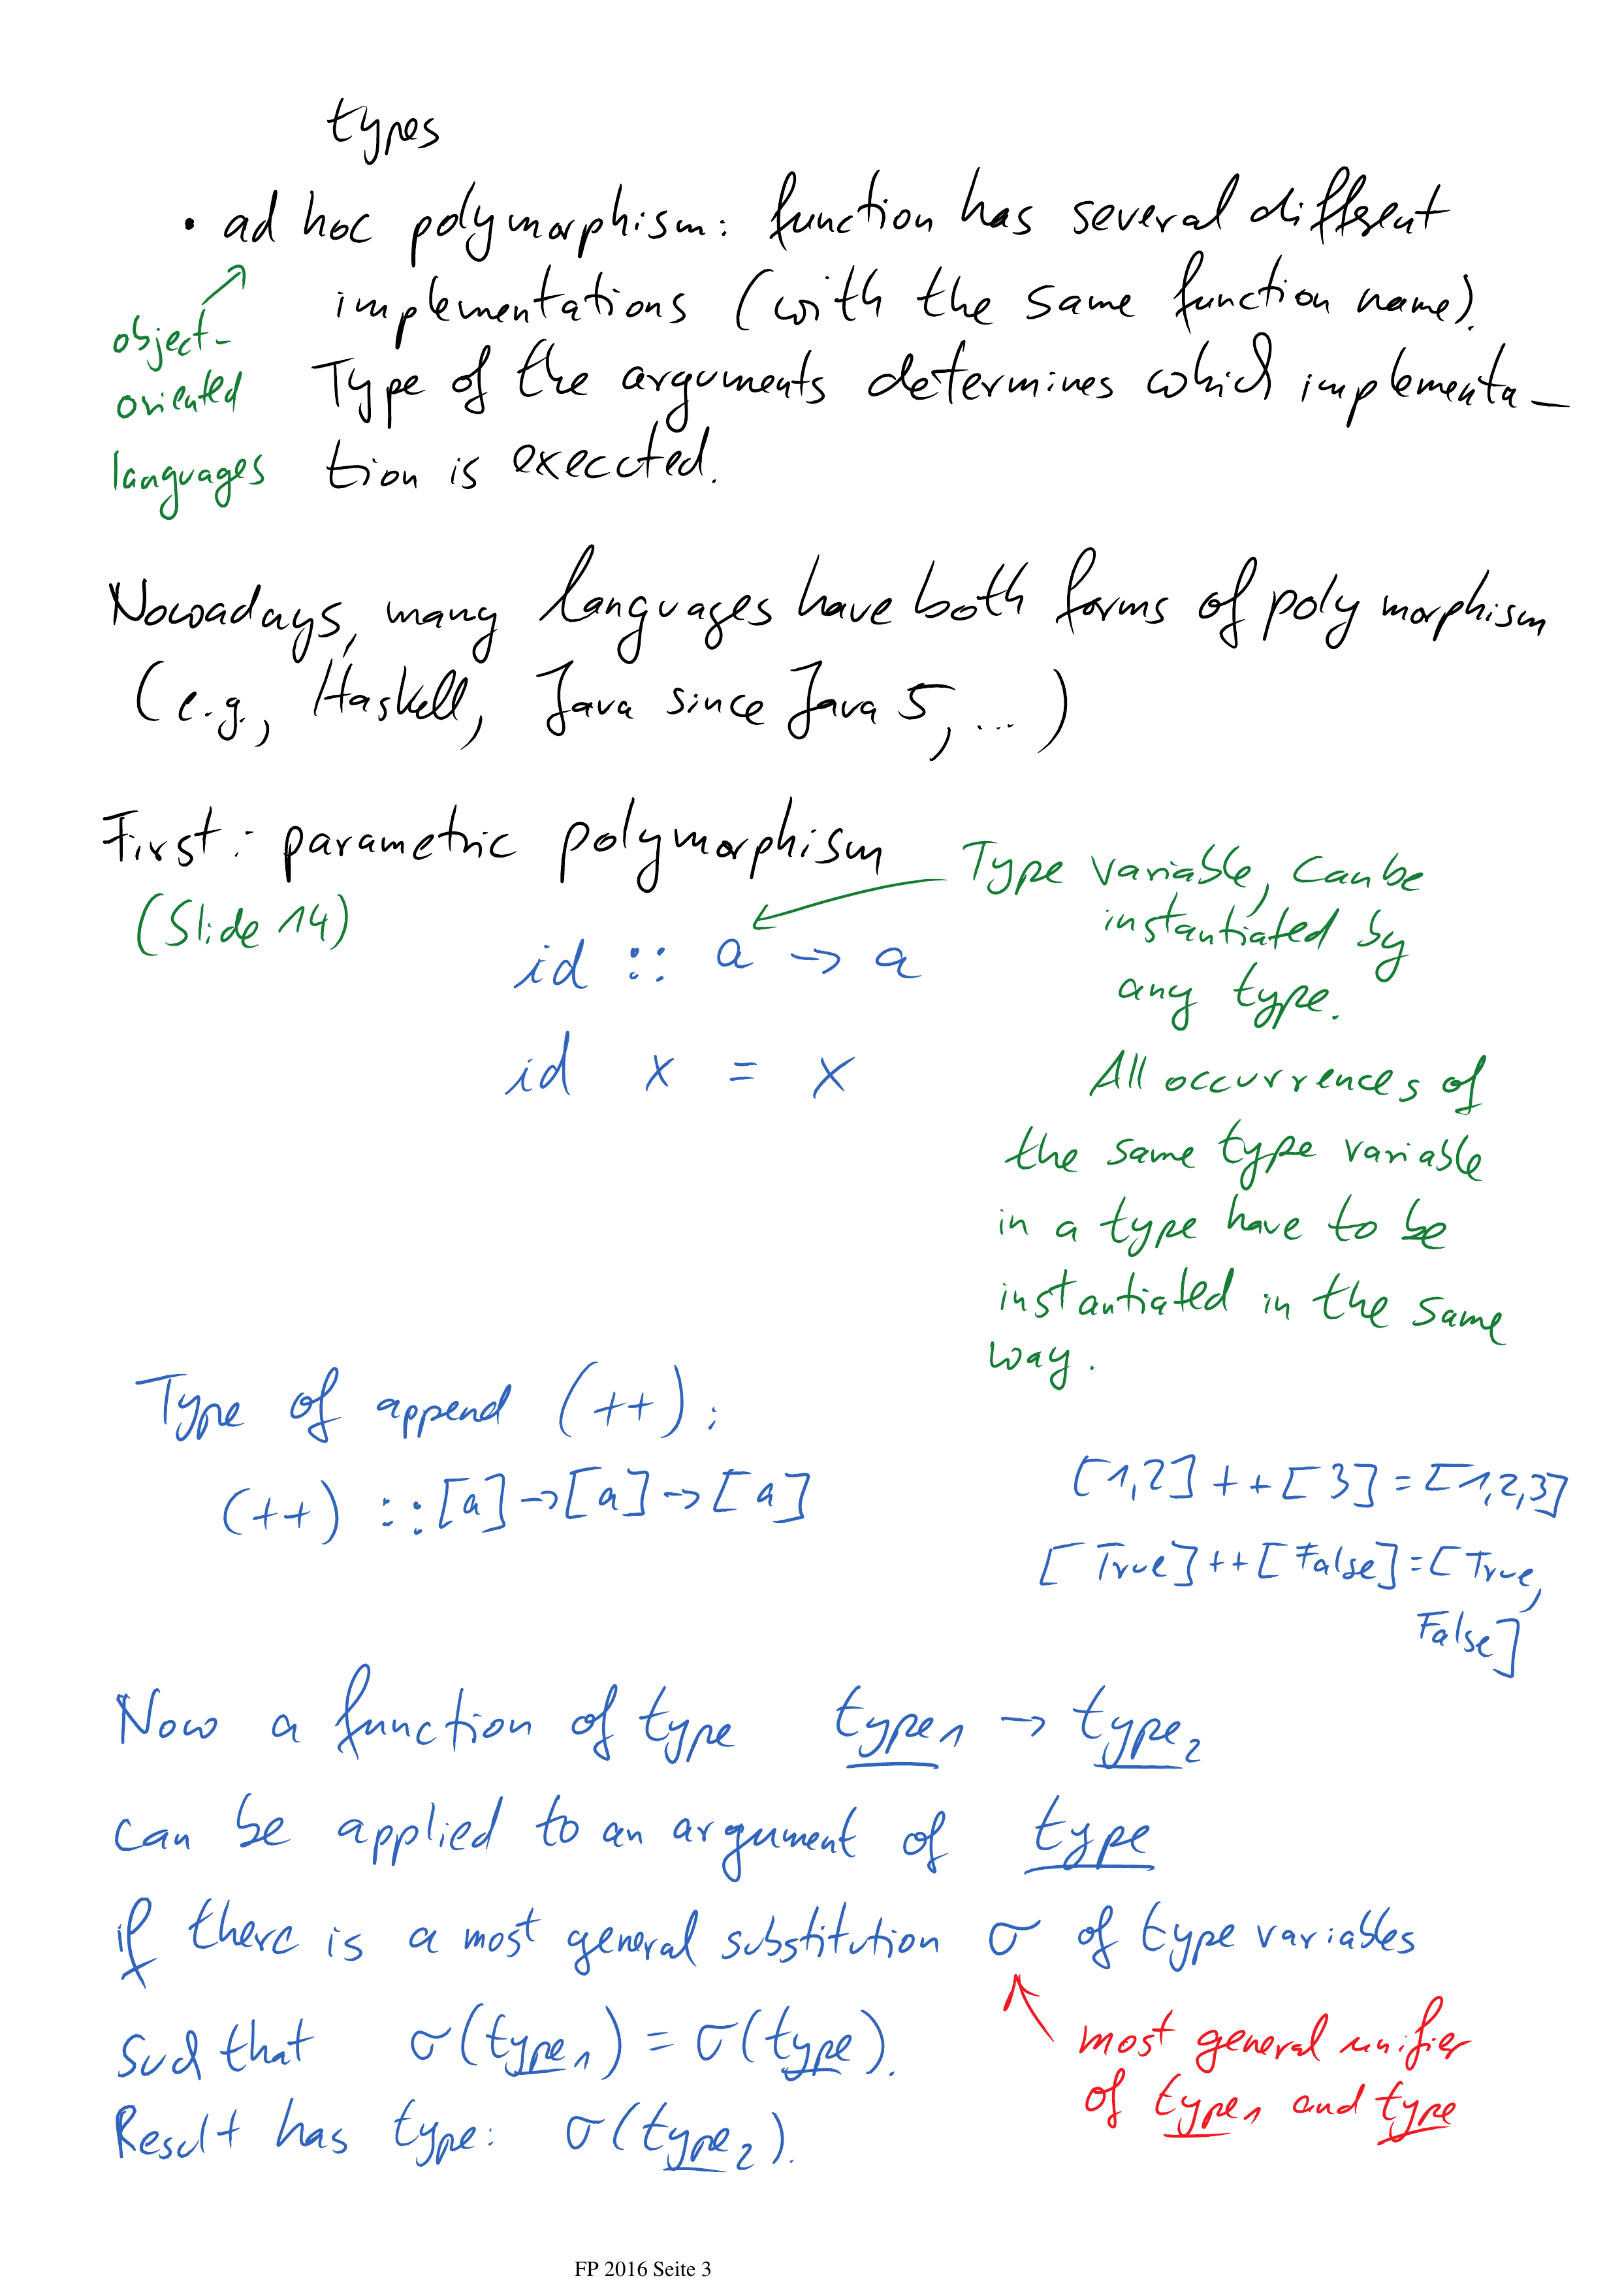 types
• ad hoc polymorphism: function has several different
implementations (with the same function name).
object-
oriented
languages
Type of the arguments determines which implementa-
tion is executed.
Nowadays, many languages have both forms of polymorphism
(e.g., Haskell, Java since Java 5, ...)
First: parametric polymorphism
(Slide 14)
Type variable, can be
instantiated by
any type.
id :: a → a
id x = x
All occurrences of
the same type variable
in a type have to be
instantiated in the same
way.
Type of append (++):
(++) :: [a] → [a] → [a]
[1,2] ++ [3] = [1,2,3]
[True] ++ [False] = [True,
False]
Now a function of type type₁ → type₂
can be applied to an argument of type
if there is a most general substitution σ of type variables
such that σ(type₁) = σ(type).
most general unifier
of type₁ and type
Result has type: σ(type₂).
FP 2016 Seite 3